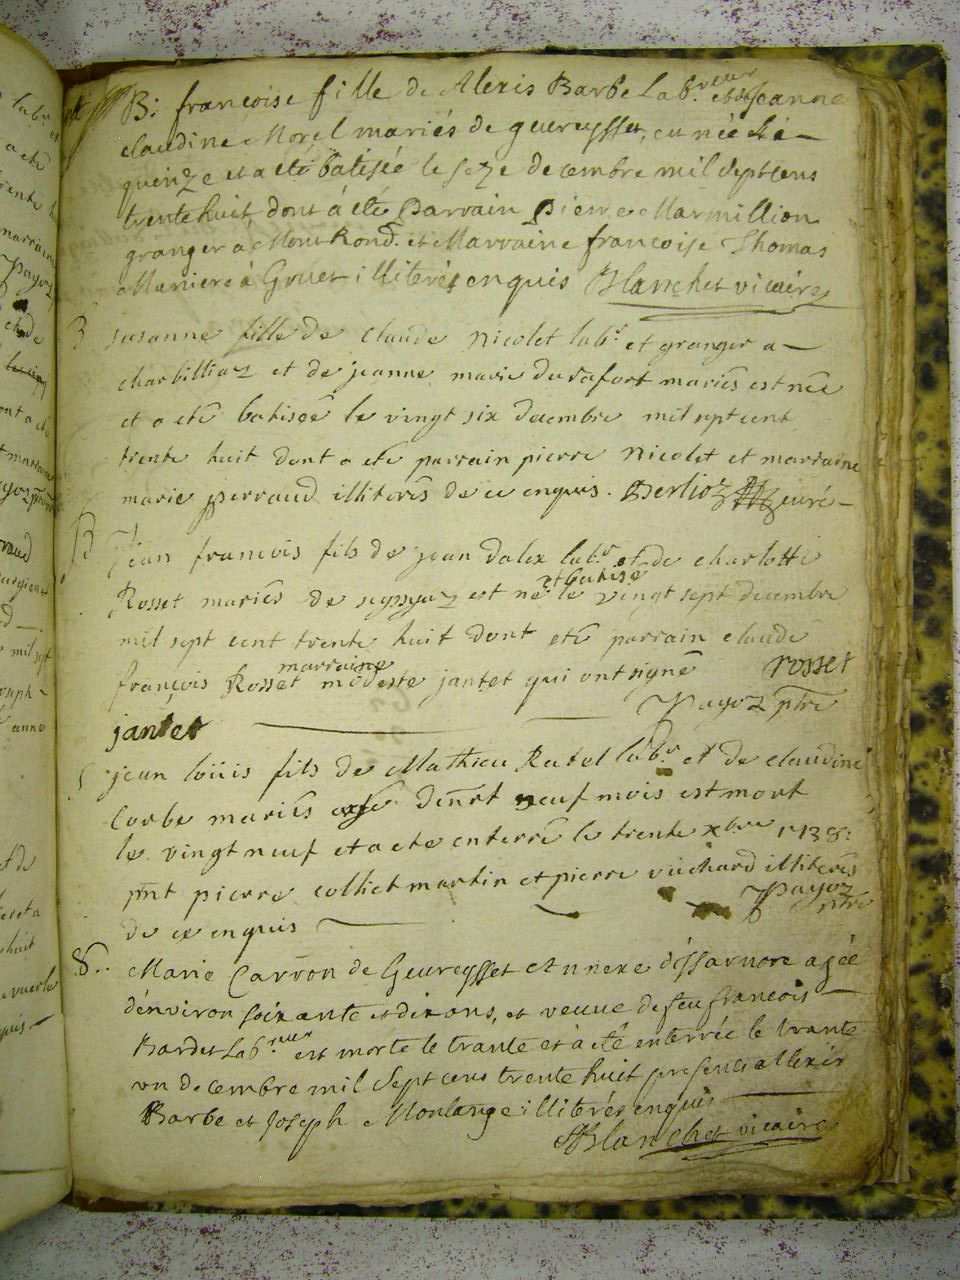 B: françoise fille de Alexis Barbe Lab.reur et de Jeanne
claudine Morel mariés de guereysset, eu née le
quinze et a eté batisée le seze decembre mil sept cens
trente huit dont à eté Parrain Pierre Marmillion
granger à Mont Rond. et Marraine francoise Thomas
Maniere à Gruet illiterés enquis Blanchet vicaire
B susanne fille de claude Nicolet lab.r et granger a
charbilliaz et de jeanne marie durafort mariés est née
et a eté batisée le vingt six decembre mil sept cent
trente huit dont a eté parrain pierre Nicolet et marraine
marie perraud illiterés de ce enquis. Berlioz curé
B Jean francois fils de jean dalex lab.r et de charlotte
Rosset mariés de seyssyaz est né et batisé le vingt sept decembre
mil sept cent trente huit dont eté parrain claude
françois Rosset marraine modeste jantet qui ont signé rosset
jantet Payoz ptre
S jean loüis fils de Mathieu Ratel lab.r et de claudine
Corbe mariés agé denrt neuf mois est mort
le vingt neuf et a eté enterré le trente xbre 1738:
pnt pierre colliet martin et pierre vuichard illiterés
de ce enquis Payoz ptre
S.. Marie Carron de Guereysset annexe d'issarnore agée
d'environ soixante et dix ans, et veuve de feu francois
Bardet Lab.reur est morte le trante et à eté enterrée le trante
un decembre mil sept cens trente huit presents allexis
Barbe et Joseph Moulange illiterés enquis
Blanchet vicaire